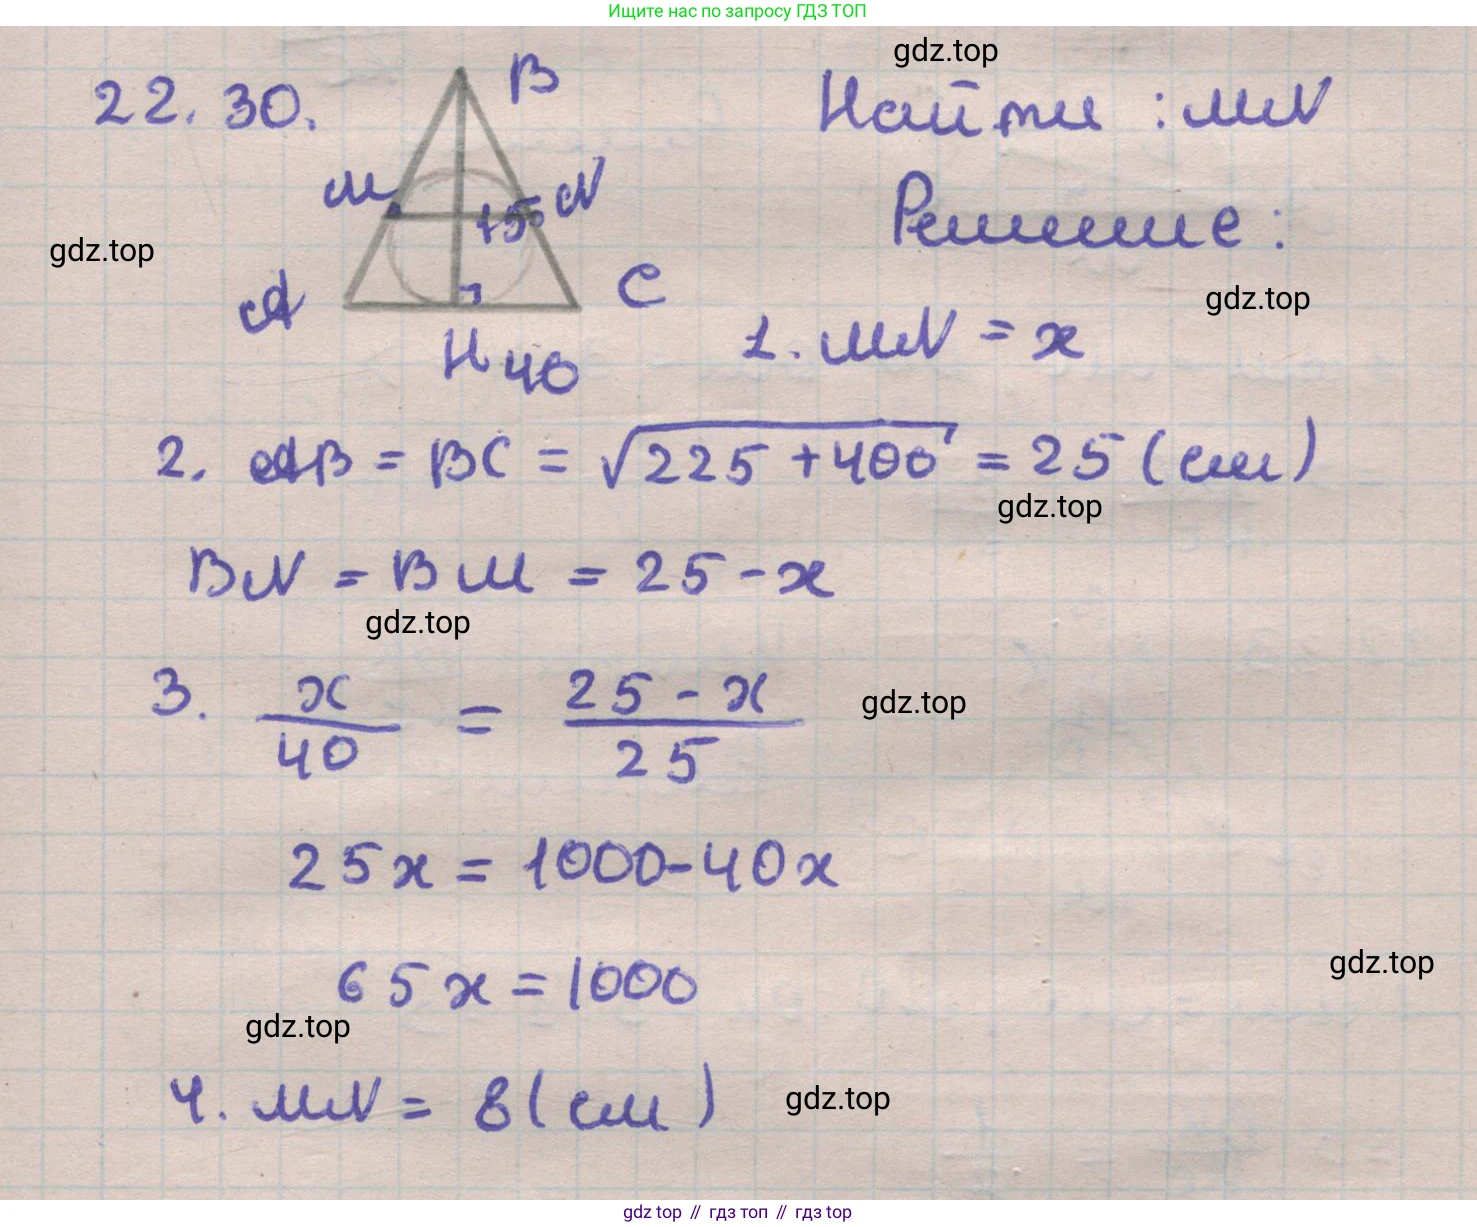 Ищите нас по запросу ГДЗ ТОП
gdz.top
22.30.
B
Найти : MN
M
N
15
Решение :
gdz.top
A
C
gdz.top
H
40
1. MN = x
2. AB = BC = √225 + 400 = 25 (см)
gdz.top
BN = BM = 25 - x
gdz.top
3. x/40 = 25 - x/25
gdz.top
25x = 1000 - 40x
65x = 1000
gdz.top
gdz.top
4. MN = 8 (см)
gdz.top
gdz top // гдз топ // гдз top